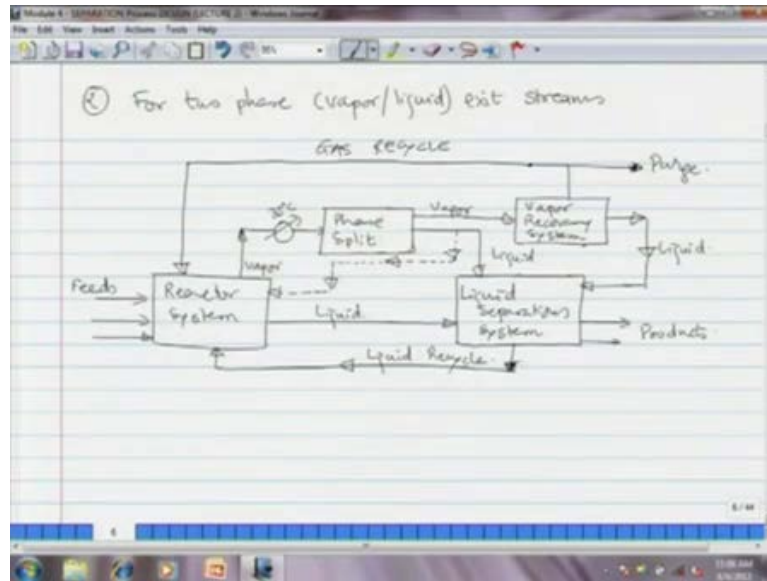 Module 4 - SEPARATION Process DESIGN (LECTURE 2) - Windows Journal
File Edit View Insert Actions Tools Help
② For two phase (vapor/liquid) exit streams
GAS RECYCLE
Purge.
Vapor
Phase
Split
Vapor
Recovery
System
Liquid
Vapor
Liquid
Feeds
Reactor
System
Liquid
Liquid
Separations
System
Products
Liquid Recycle.
6